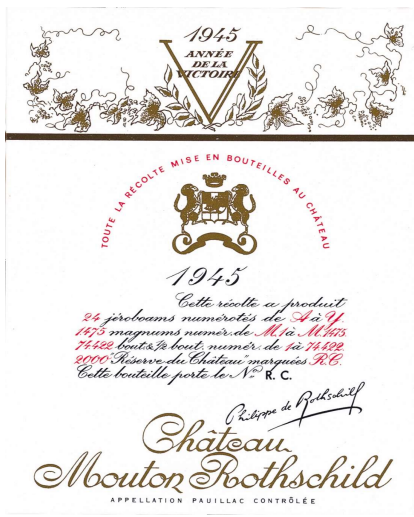 1945
ANNÉE
DE LA
VICTOIRE
TOUTE LA RÉCOLTE MISE EN BOUTEILLES AU CHÂTEAU
1945
Cette récolte a produit
24 jéroboams numérotés de A à Y.
1475 magnums numér. de M.1 à M.1475
74422 bout.& ½ bout. numér. de 1 à 74422
2000 "Réserve du Château" marquées R.C.
Cette bouteille porte le No. R.C.
Philippe de Rothschild
Château
Mouton Rothschild
APPELLATION PAUILLAC CONTRÔLÉE